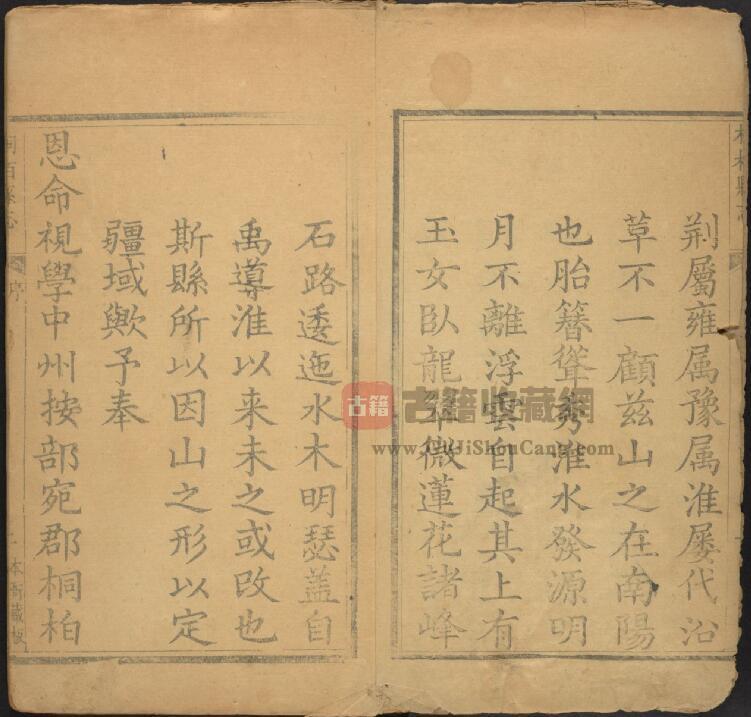 荆屬雍属豫属淮屡代沿
草不一顧兹山之在南陽
也胎簪聳秀淮水發源明
月不離浮雲自起其上有
玉女臥龍翠微蓮花諸峰
石路逶迤水木明瑟盖自
禹導淮以来未之或改也
斯縣所以因山之形以定
疆域歟予奉
恩命視學中州按部宛郡桐柏
桐柏縣志
序
一
本衙藏板
古籍
古籍收藏網
www.GuJiShouCang.com